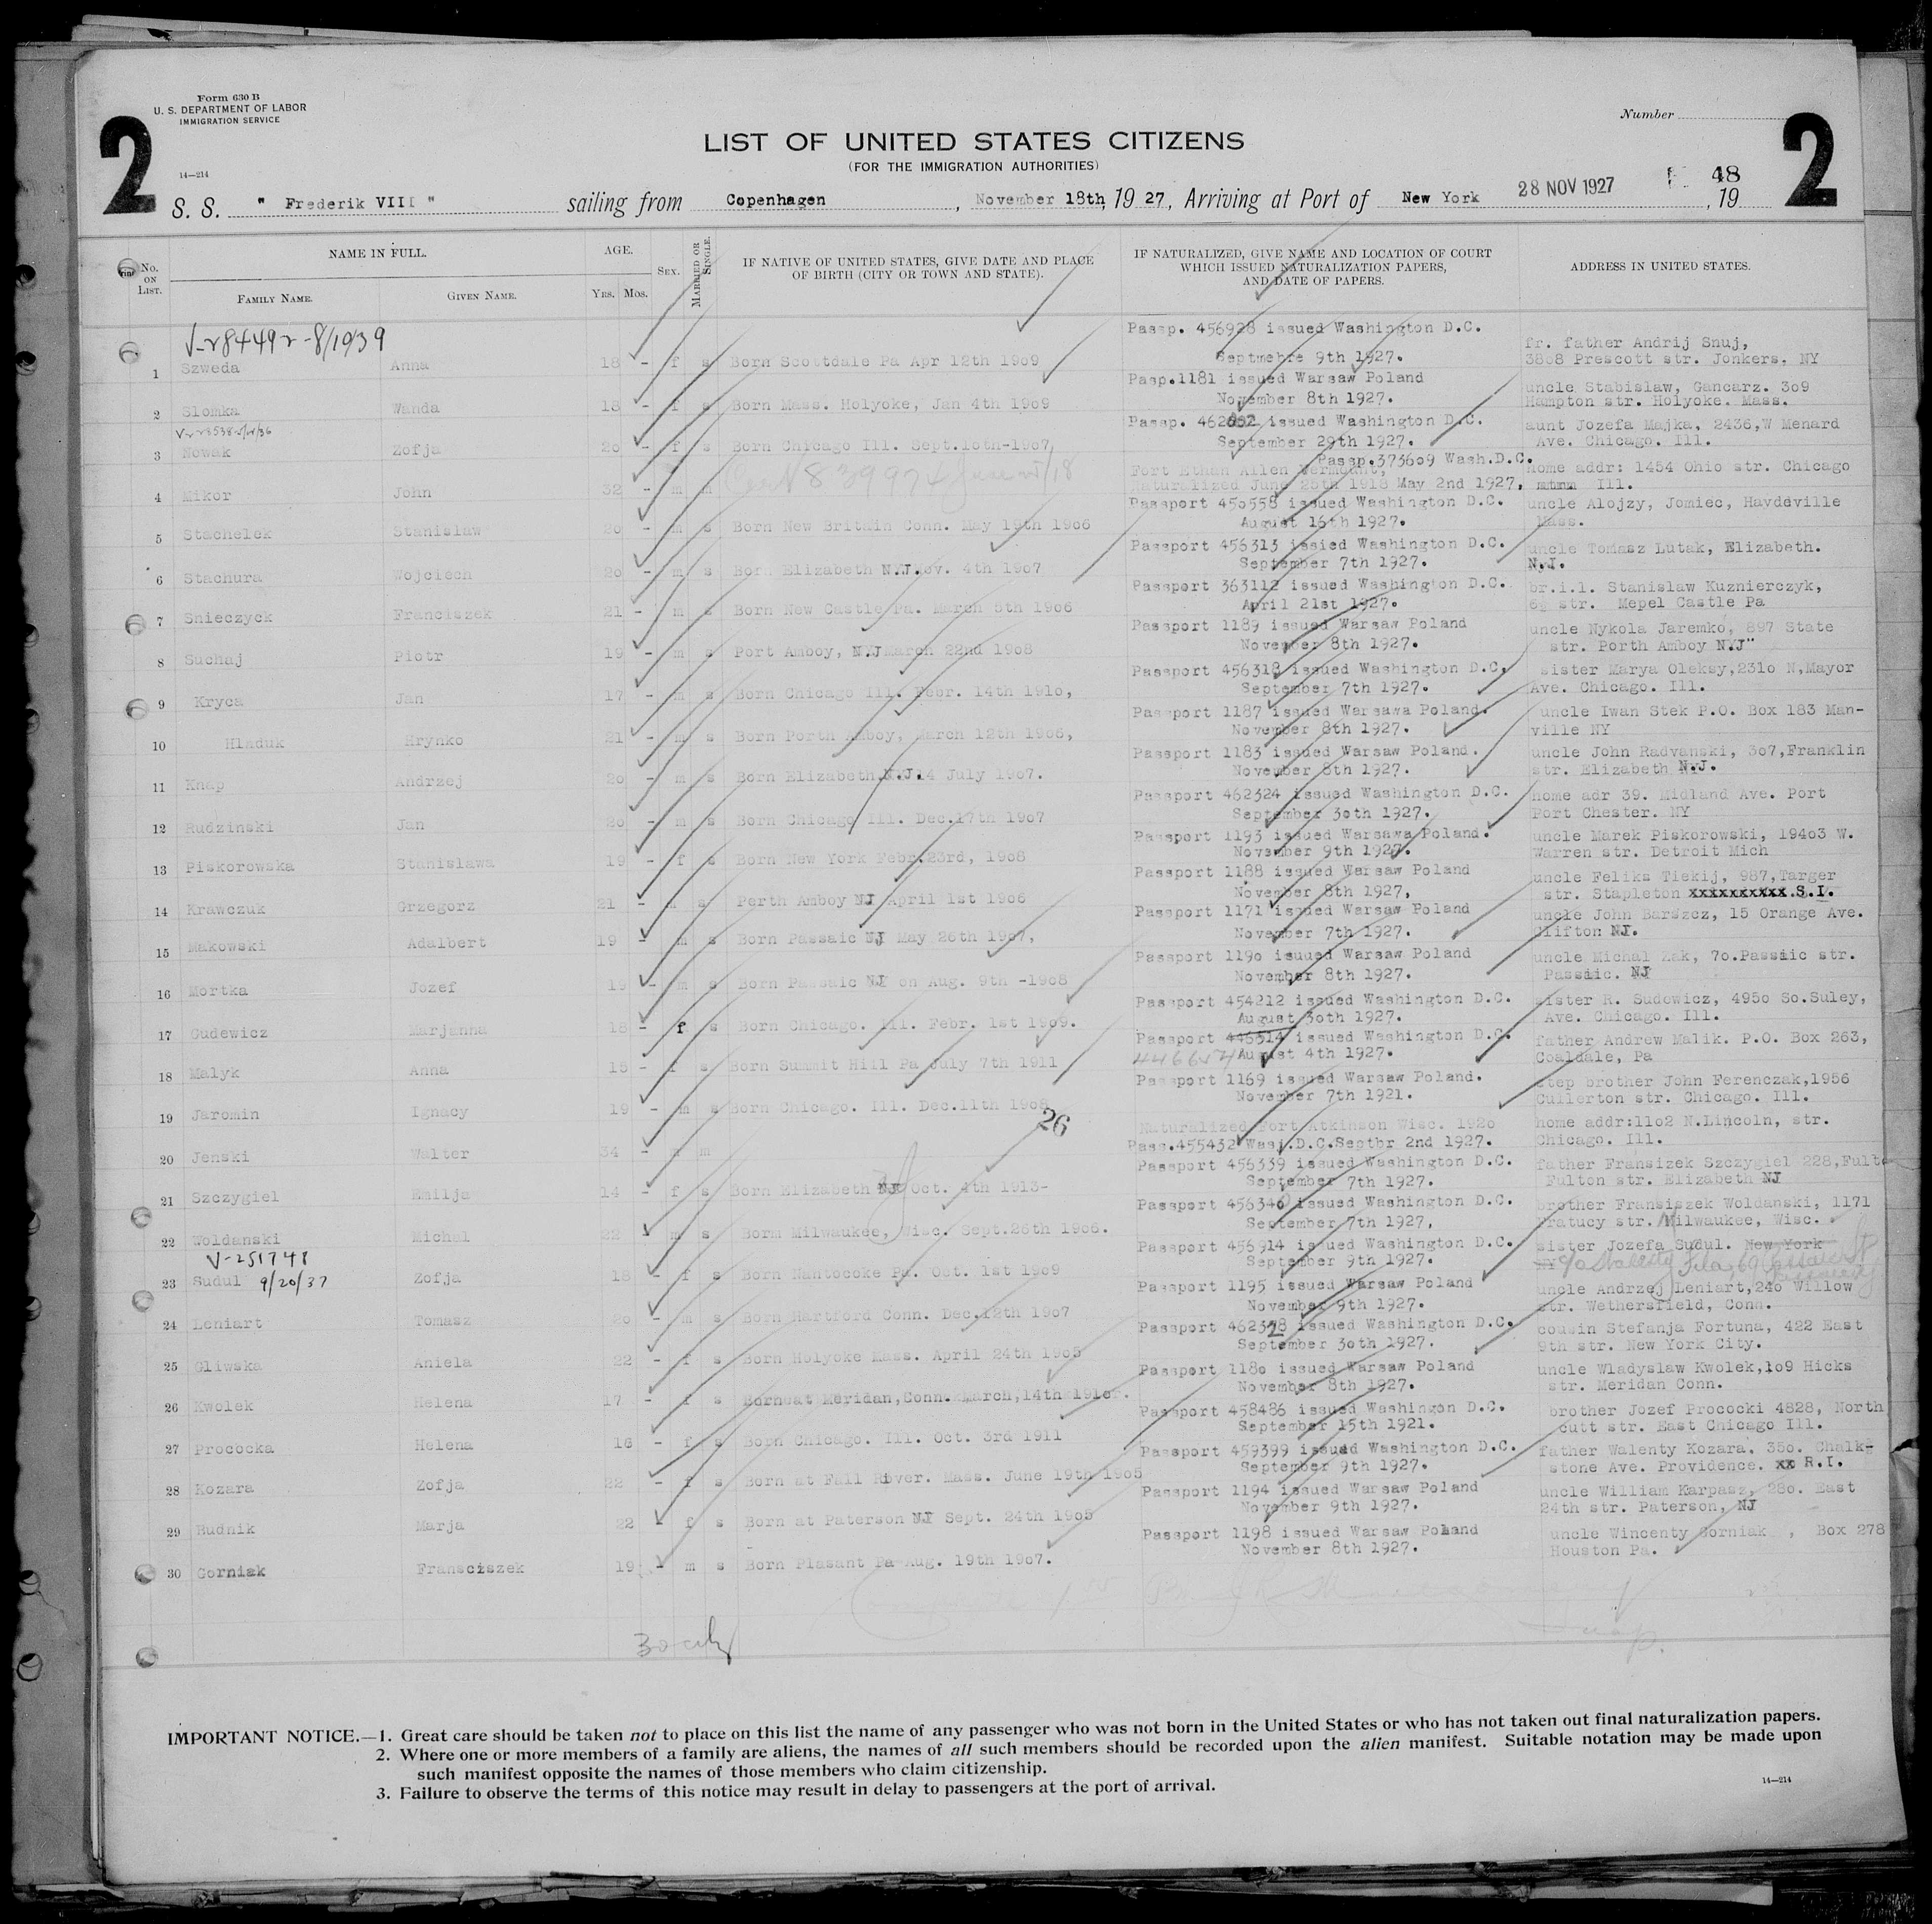 Form 630 B
U. S. DEPARTMENT OF LABOR
IMMIGRATION SERVICE
Number
2
2
LIST OF UNITED STATES CITIZENS
(FOR THE IMMIGRATION AUTHORITIES)
14—214
28 NOV 1927
48
S. S. " Frederik VIII " sailing from Copenhagen, November 18th, 1927, Arriving at Port of New York , 19
No. on List.
NAME IN FULL.
Family Name.
Given Name.
AGE.
Yrs. Mos.
Sex.
Married or Single.
IF NATIVE OF UNITED STATES, GIVE DATE AND PLACE OF BIRTH (CITY OR TOWN AND STATE).
IF NATURALIZED, GIVE NAME AND LOCATION OF COURT WHICH ISSUED NATURALIZATION PAPERS, AND DATE OF PAPERS.
ADDRESS IN UNITED STATES.
V-284492-8/10/39
1 Szweda Anna 18 - f s Born Scottdale Pa Apr 12th 19o9 Passp. 456928 issued Washington D.C. Septmebre 9th 1927. fr. father Andrij Snuj, 38o8 Prescott str. Jonkers, NY
2 Slomka Wanda 18 - f s Born Mass. Holyoke, Jan 4th 19o9 Pasp.1181 issued Warsaw Poland November 8th 1927. uncle Stabislaw, Gancarz. 3o9 Hampton str. Holyoke. Mass.
3 Nowak Zofja 2o - f s Born Chicago Ill. Sept.10th-19o7, Passp. issued Washington D.C. September 29th 1927. aunt Jozefa Majka, 2436,W Menard Ave. Chicago. Ill.
4 Mikor John 32 - m m Fort Ethan Allen Vermount, Passp.3736o9 Wash.D.C. Naturalized June 25th 1918 May 2nd 1927, home addr: 1454 Ohio str. Chicago Ill.
5 Stachelek Stanislaw 2o - m s Born New Britain Conn. May 19th 19o6 Passport 45o558 issued Washington D.C. August 16th 1927. uncle Alojzy, Jomiec, Havddville Mass.
6 Stachura Wojciech 2o - m s Born Elizabeth N.J. Nov. 4th 19o7 Passport 456313 issied Washington D.C. September 7th 1927. uncle Tomasz Lutak, Elizabeth. N.J.
7 Snieczyck Franciszek 21 - m s Born New Castle Pa. March 5th 19o6 Passport 363112 issued Washington D.C. April 21st 1927. br.i.l. Stanislaw Kuznierczyk, str. Mepel Castle Pa
8 Suchaj Piotr 19 - m s Port Amboy, NJ March 22nd 19o8 Passport 1189 issued Warsaw Poland November 8th 1927. uncle Nykola Jaremko, 897 State str. Porth Amboy N.J"
9 Kryca Jan 17 - m s Born Chicago Ill. Febr. 14th 191o, Passport 456318 issued Washington D.C, September 7th 1927. sister Marya Oleksy,231o N,Mayor Ave. Chicago. Ill.
10 Hladuk Hrynko 21 - m s Born Porth Amboy, March 12th 19o6, Passport 1187 issued Warsawa Poland. November 8th 1927. uncle Iwan Stek P.O. Box 183 Man- ville NY
11 Knap Andrzej 2o - m s Born Elizabeth N.J. 14 July 19o7. Passport 1183 issued Warsaw Poland. November 8th 1927. uncle John Radvanski, 3o7,Franklin str. Elizabeth N.J.
12 Rudzinski Jan 2o - m s Born Chicago Ill. Dec.17th 19o7 Passport 462324 issued Washington D.C. September 3oth 1927. home adr 39. Midland Ave. Port Port Chester. NY
13 Piskorowska Stanislawa 19 - f s Born New York Febr.23rd, 19o8 Passport 1193 issued Warsawa Poland. November 9th 1927. uncle Marek Piskorowski, 194o3 W. Warren str. Detroit Mich
14 Krawczuk Grzegorz 21 - s Perth Amboy NJ April 1st 19o6 Passport 1188 issued Warsaw Poland November 8th 1927, uncle Feliks Tiekij, 987,Targer str. Stapleton xxxxxxxxxx.S.I.
15 Makowski Adalbert 19 - m s Born Passaic NJ May 26th 19o7, Passport 1171 issued Warsaw Poland November 7th 1927. uncle John Barszcz, 15 Orange Ave. Clifton NJ.
16 Mortka Jozef 19 - m s Born Passaic NJ on Aug. 9th -19o8 Passport 119o isuued Warsaw Poland November 8th 1927. uncle Michal Zak, 7o.Passiic str. Passiic. NJ
17 Gudewicz Marjanna 18 - f s Born Chicago. Ill. Febr. 1st 19o9. Passport 454212 issued Washington D.C. August 3oth 1927. sister R. Sudowicz, 495o So.Suley, Ave. Chicago. Ill.
18 Malyk Anna f s Born Summit Hill Pa July 7th 1911 Passport 446514 issued Washington D.C. August 4th 1927. father Andrew Malik. P.O. Box 263, Coaldale, Pa
19 Jaromin Ignacy 19 - m s Born Chicago. Ill. Dec.11th 19o8 Passport 1169 issued Warsaw Poland. November 7th 1921. step brother John Ferenczak,1956 Cullerton str. Chicago. Ill.
26
20 Jenski Walter 34 - m m Naturalized Fort Atkinson Wisc. 192o Pass.455432 Wasj.D.C.Septbr 2nd 1927. home addr:11o2 N.Lincoln, str. Chicago. Ill.
21 Szczygiel Emilja 14 - f s Born Elizabeth NJ Oct. 4th 1913- Passport 456339 issued Washington D.C. September 7th 1927. father Fransizek Szczygiel 228,Fulto Fulton str. Elizabeth NJ
22 Woldanski Michal 22 - m s Born Milwaukee, Wisc. Sept.26th 19o6. Passport 456340 issued Washington D.C. September 7th 1927, brother Fransiszek Woldanski, 1171 Pratucy str. Milwaukee, Wisc.
V-251748
9/20/37
23 Sudul Zofja 18 - f s Born Nantocoke Pa. Oct. 1st 19o9 Passport 456914 issued Washington D.C. September 9th 1927. sister Jozefa Sudul. New York
24 Leniart Tomasz 2o - m s Born Hartford Conn. Dec.12th 19o7 Passport 1195 issued Warsaw Poland November 9th 1927. uncle Andrzej Leniart,24o Willow str. Wethersfield, Conn.
25 Gliwska Aniela 22 - f s Born Holyoke Mass. April 24th 19o5 Passport issued Washington D.C. September 3oth 1927. cousin Stefanja Fortuna, 422 East 9th str. New York City.
26 Kwolek Helena 17 - f s Born at Meridan,Conn. March,14th 191o. Passport 118o issued Warsaw Poland November 8th 1927. uncle Wladyslaw Kwolek,1o9 Hicks str. Meridan Conn.
27 Prococka Helena 16 - f s Born Chicago. Ill. Oct. 3rd 1911 Passport 458486 issued Washingon D.C. September 15th 1921. brother Jozef Procock​i 4828, North cutt str. East Chicago Ill.
28 Kozara Zofja 22 - f s Born at Fall River. Mass. June 19th 19o5 Passport 459399 issued Washington D.C. September 9th 1927. father Walenty Kozara. 35o. Chalk- stone Ave. Providence. xx R.I.
29 Budnik Marja 22 - f s Born at Paterson NJ Sept. 24th 19o5 Passport 1194 issued Warsaw Poland November 9th 1927. uncle William Karpasz, 28o. East 24th str. Paterson, NJ
30 Gorniak Fransciszek 19 - m s Born Plasant Pa Aug. 19th 19o7. Passport 1198 issued Warsaw Poland November 8th 1927. uncle Wincenty Gorniak , Box 278 Houston Pa.
IMPORTANT NOTICE.—1. Great care should be taken not to place on this list the name of any passenger who was not born in the United States or who has not taken out final naturalization papers.
2. Where one or more members of a family are aliens, the names of all such members should be recorded upon the alien manifest. Suitable notation may be made upon
such manifest opposite the names of those members who claim citizenship.
3. Failure to observe the terms of this notice may result in delay to passengers at the port of arrival.
14—214